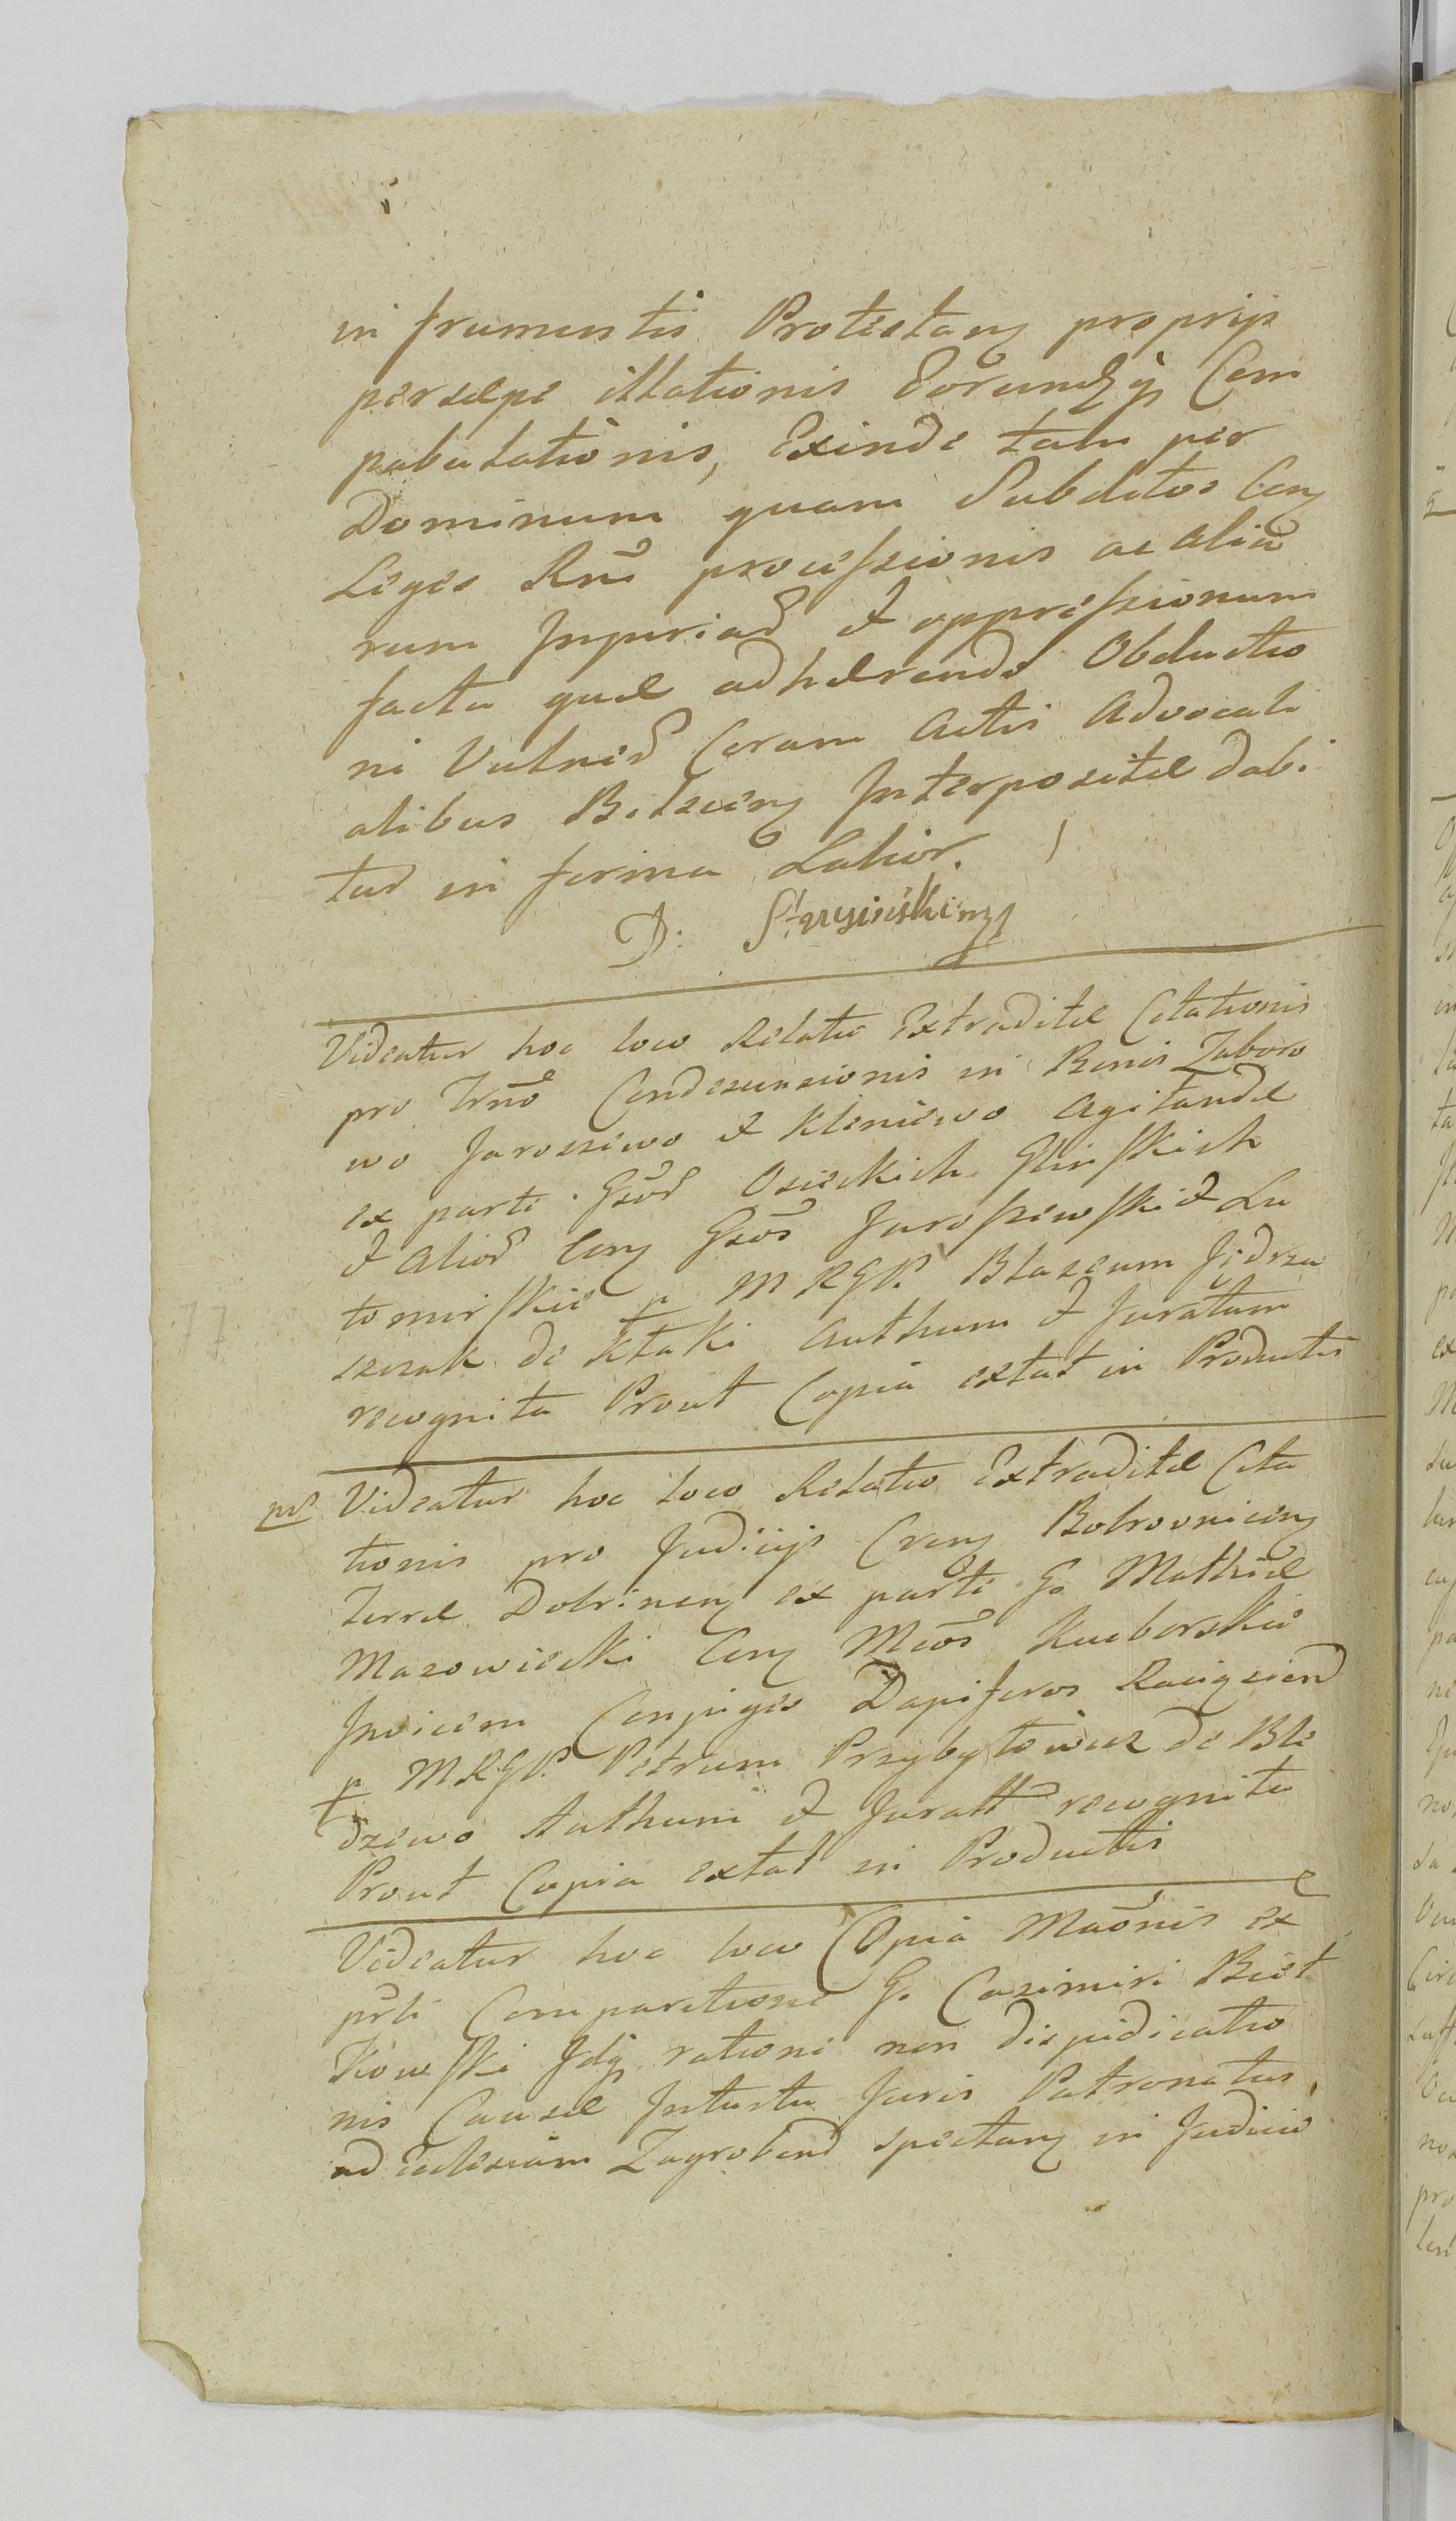 in frumentis Protestan proprijs
persaepe illationis Eorundq̃ Com
pabulationis, Exinde tam per
Dominum quam Subditos Con
Leges Rñi processionis ac aliõ
rum Injuriar̃ et oppressionum
facta quae adhaerendo Obductio
ni Vulner̃ Coram Actis Advocati
alibus Bilscen Interpositae dabi
tur in forma Latior.
D:
Videatur hoc loco Relatio Extraditae Citationis
pro Trño Condescensionis in Bonis Zaboro
wo Jaroszewo et Kleniewo Agitandae
ex parte Gsõr Osieckich Glinskich
et Alior̃ Con Gsõs Jaroszewskie et Lu
tomirskie p MRGP. Blaseum Jędrza
szczak de Ktaki Authum et Juratum
recognita Prout Copia extat in Productis
Videatur hoc loco Relatio Extraditae Cita
tionis pro Judicijs Cren Bobrovnicen
Terrae Dobrinen ex parte G. Mathiae
Mazowiecki Con Mcõs Kucborskie
Invicem Conjuges Dapiferos Raciązien
p MRGP. Petrum Przybyłowicz de Ble
dzewo Authum et Juratt recognita
Prout Copia extat in Productis
Videatur hoc loco Copia Maõnis ex
prti Comparitione G. Casimiri Bięt
kowski Idq̃ ratione non dispidicatio
nis Causae Intuitu Juris Patronatus
ad Ecclesiam Zagroben spectan in Judicio